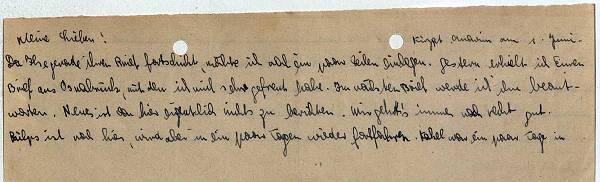 Meine Lieben! Kirjat Anavim am 1. Juni.
Da Ihr gerade Ihren Brief fortschickt, möchte ich noch ein paar Zeilen einlegen. Gestern erhielt ich Euren
Brief aus Osnabrück, mit dem ich mich sehr gefreut habe. Im nächsten Brief werde ich ihn beant-
worten. Neues ist von hier eigentlich nichts zu berichten. Uns geht's immer noch recht gut.
ist noch hier, wird aber in ein paar Tagen wieder fortfahren. war ein paar Tage in